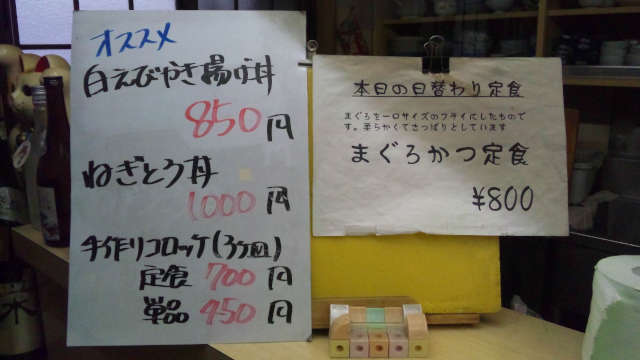 オススメ
白えびやき揚げ丼
850円
ねぎとろ丼
1000円
手作りコロッケ(3ヶ皿)
定食 700円
単品 450円
本日の日替わり定食
まぐろを一口サイズのフライにしたもので
す。柔らかくてさっぱりとしています
まぐろかつ定食
¥800